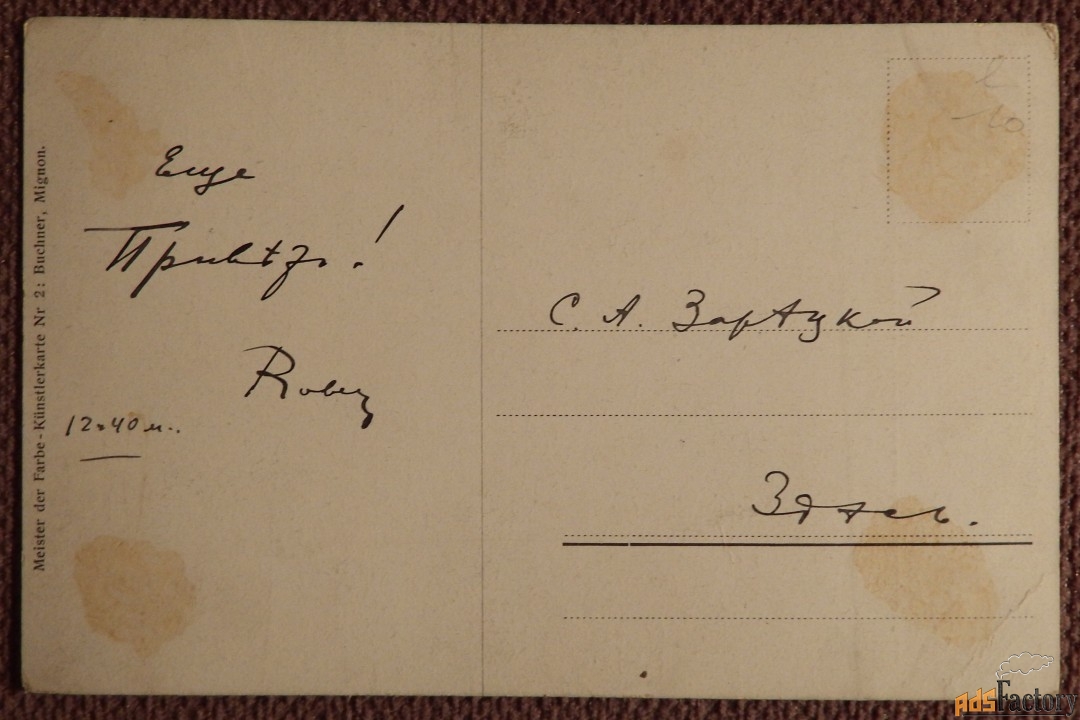 Meister der Farbe-Künstlerkarte Nr 2: Buchner, Mignon.
Еще
Привѣтъ!
12 ч 40 м.
С. А. Зарѣцкой
Здѣсь.
10
AdsFactory